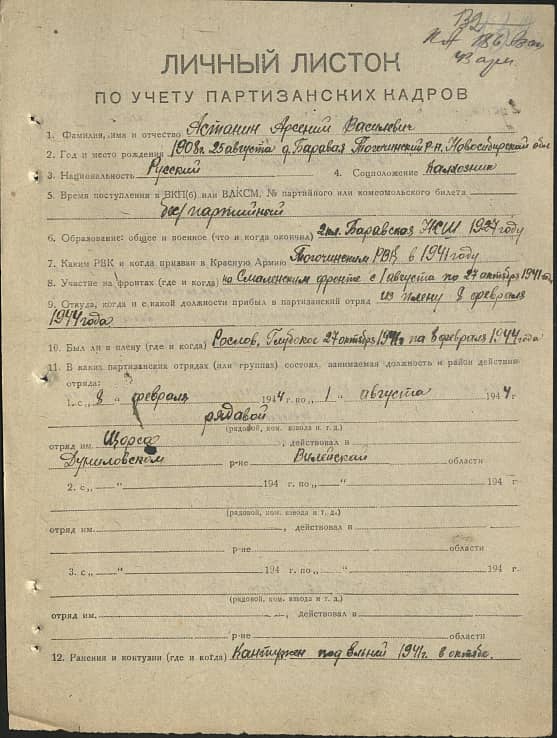 ЛИЧНЫЙ ЛИСТОК
ПО УЧЕТУ ПАРТИЗАНСКИХ КАДРОВ
1. Фамилия, имя и отчество Астанин Арсений Василевич
2. Год и место рождения 1908г. 25 августа д. Баравая Тогочинский р-н, Новосибирской обл
3. Национальность Русский 4. Соцположение Калхозник
5. Время поступления в ВКП(б) или ВЛКСМ, № партийного или комсомольского билета
бес/партийный
6. Образование: общее и военное (что и когда окончил) 2 кл. Баравская НСШ 1927 году
7. Каким РВК и когда призван в Красную Армию Тогочинским РВК в 1941 году
8. Участие на фронтах (где и когда) на Смаленским фронте с 1 августа по 27 октября 1941
9. Откуда, когда и с какой должности прибыл в партизанский отряд из плену 8 февраля
1944 года
10. Был ли в плену (где и когда) Рослов, Глубокое 27 октября 1941г по 8 февраля 1944 года
11. В каких партизанских отрядах (или группах) состоял, занимаемая должность и район действия
отряда:
1. с „ 8 “ февраля 1944 г. по „ 1 “ августа 1944 г
рядавой
(рядовой, ком. взвода и т. д.)
отряд им. Щорса, действовал в
Дуниловском р-не Вилейской области
2. с „ “ 194 г. по „ “ 194 г
(рядовой, ком. взвода и т. д.)
отряд им. , действовал в
р-не области
3. с „ “ 194 г. по „ “ 194 г.
(рядовой, ком. взвода и т. д.)
отряд им. , действовал в
р-не области
12. Ранения и контузии (где и когда) Кантужен под Ельней 1941г. в октябе.